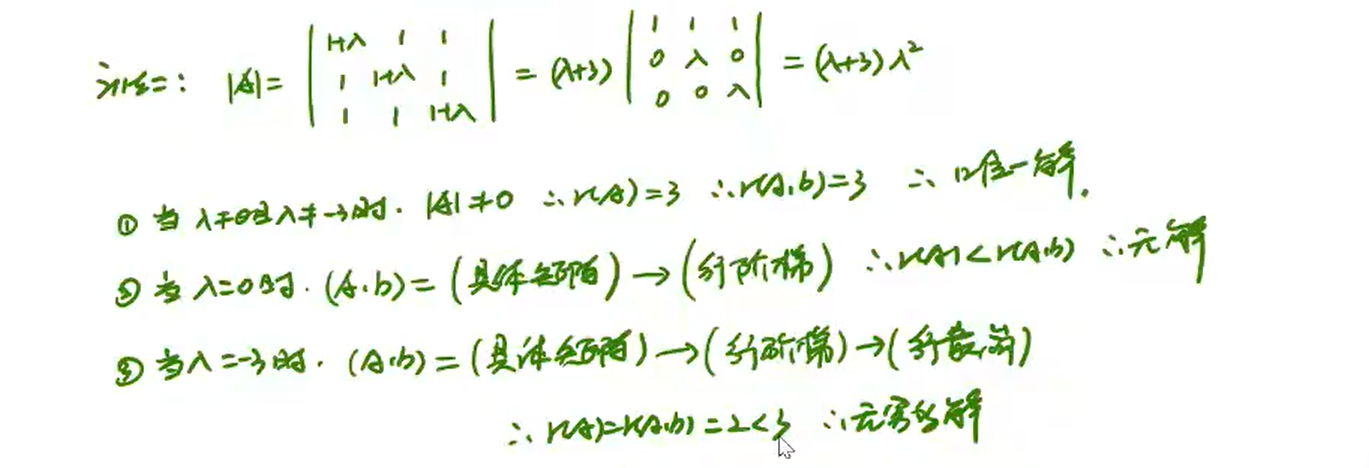 方法二: |A| = | 1+λ 1 1 | = (λ+3) | 1 1 1 | = (λ+3) λ²
| 1 1+λ 1 | | 0 λ 0 |
| 1 1 1+λ | | 0 0 λ |
① 当 λ≠0且λ≠-3时. |A|≠0 ∴r(A)=3 ∴r(A,b)=3 ∴ 唯一解.
② 当 λ=0时. (A,b)=(具体矩阵)→(行阶梯) ∴r(A)<r(A,b) ∴无解
③ 当λ=-3时. (A,b)=(具体矩阵)→(行阶梯)→(行最简)
∴ r(A)=r(A,b)=2<3 ∴无穷多解